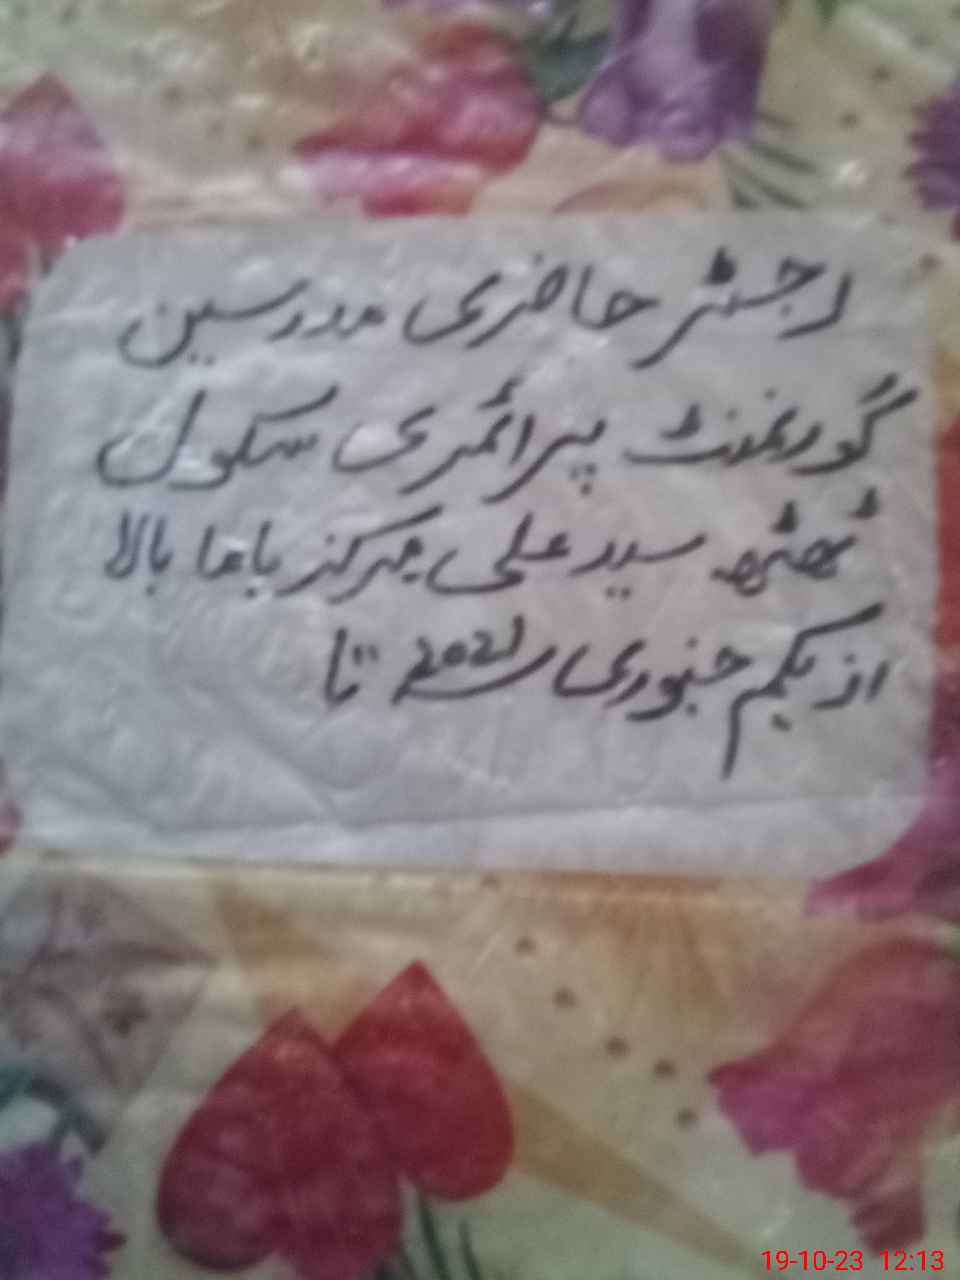 رجسٹر حاضری مدرسین
گورنمنٹ پرائمری سکول
ٹھٹھہ سید علی مرکز باما بالا
از یکم جنوری 2021 تا
19-10-23 12:13